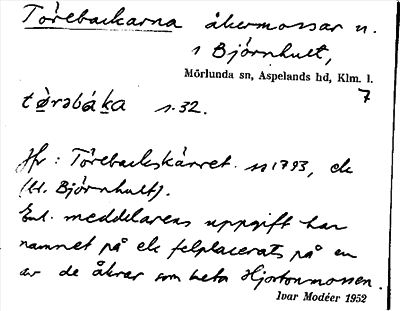 Törebackarna åkermossar n.
s Björnhult,
Mörlunda sn, Aspelands hd, Klm. l.
7
tø̀rəbáka s. 32.
Jfr: Törebackskärret. 1793, ek
(U. Björnhult).
Enl. meddelarens uppgift har
namnet på ek felplacerats på en
av de åkrar som heta Hjortonmossen.
Ivar Modéer 1952